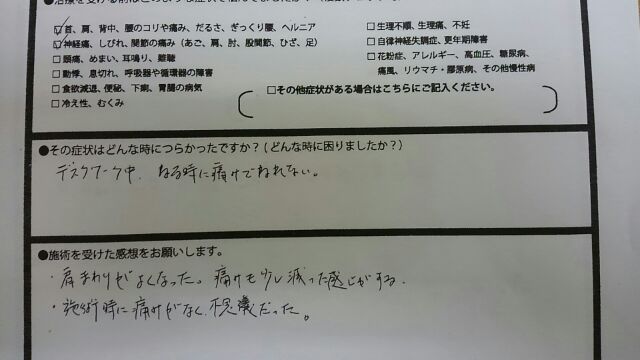 ●治療を受ける前はどのような症状で悩んで
☑首、肩、背中、腰のコリや痛み、だるさ、ぎっくり腰、ヘルニア
☑神経痛、しびれ、関節の痛み（あご、肩、肘、股関節、ひざ、足）
□頭痛、めまい、耳鳴り、難聴
□動悸、息切れ、呼吸器や循環器の障害
□食欲減退、便秘、下痢、胃腸の病気
□冷え性、むくみ
□生理不順、生理痛、不妊
□自律神経失調症、更年期障害
□花粉症、アレルギー、高血圧、糖尿病、
痛風、リウマチ・膠原病、その他慢性病
□その他症状がある場合はこちらにご記入ください。
●その症状はどんな時につらかったですか？（どんな時に困りましたか？）
デスクワーク中、ねる時に痛みでねれない。
●施術を受けた感想をお願いします。
・肩まわりがよくなった。痛みも少し減った感じがする。
・施術時に痛みがなく、不思議だった。